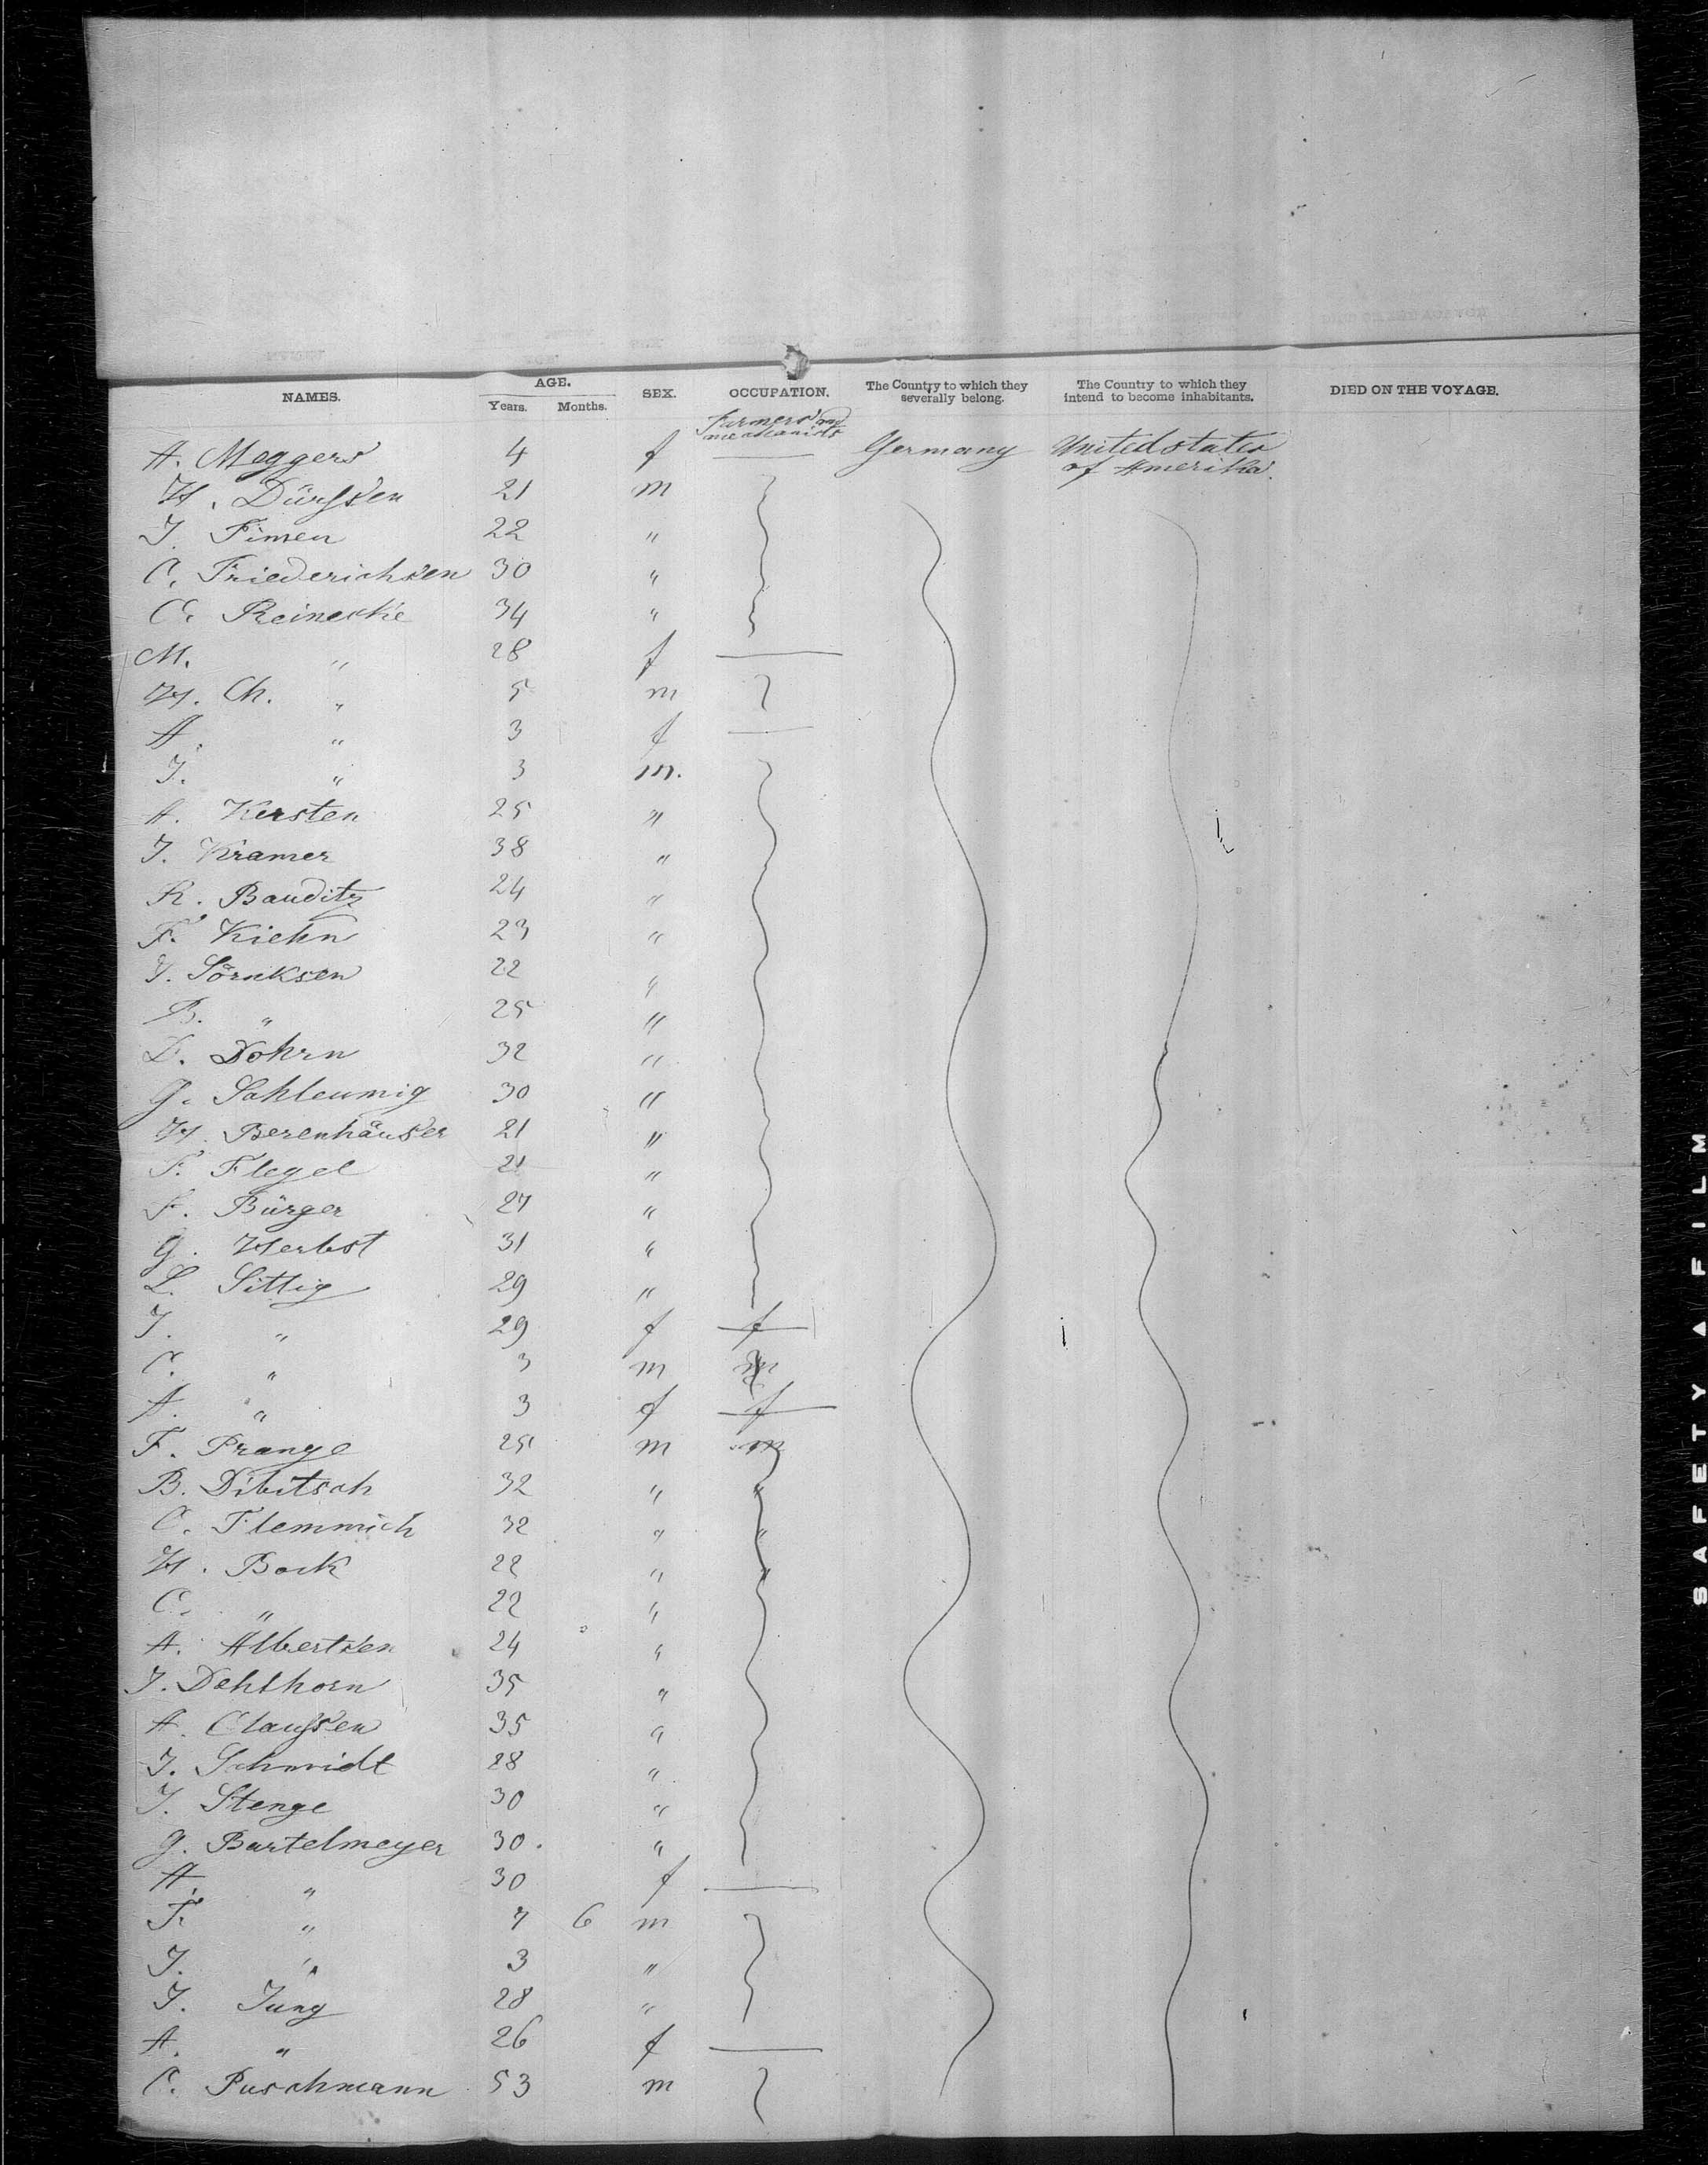 NAMES. AGE. Years. Months. SEX. OCCUPATION. The Country to which they severally belong. The Country to which they intend to become inhabitants. DIED ON THE VOYAGE.
Farmers and mechanists
A. Meggers 4 f Germany United states of Amerika.
H. Dürssen 21 m
J. Timen 22 "
C. Friederichsen 30 "
C. Reinecke 34 "
M. " 28 f
H. Ch. " 5 m
A. " 3 f
J. " 3 m.
A. Kersten 25 "
J. Kramer 38 "
R. Bauditz 24 "
F. Kiehn 23 "
J. Sönksen 22 "
B. " 25 "
D. Dohrn 32 "
G. Schleumig 30 "
H. Berenhäuser 21 "
F. Flegel 21 "
F. Bürger 27 "
G. Herbst 31 "
L. Sittig 29 "
J. " 29 f f
C. " 3 m m
A. " 3 f f
F. Prange 25 m m
B. Dibitsch 32 " "
C. Flemmich 32 " "
H. Bock 22 " "
C. " 22 "
A. Albertsen 24 "
J. Dehlhorn 35 "
A. Claussen 35 "
J. Schmidt 28 "
J. Stenge 30 "
G. Bartelmeyer 30. "
A. " 30 f
F. " 7 6 m
J. " 3 "
J. Jung 28 "
A. " 26 f
C. Puschmann 53 m
SAFETY ▲ FILM